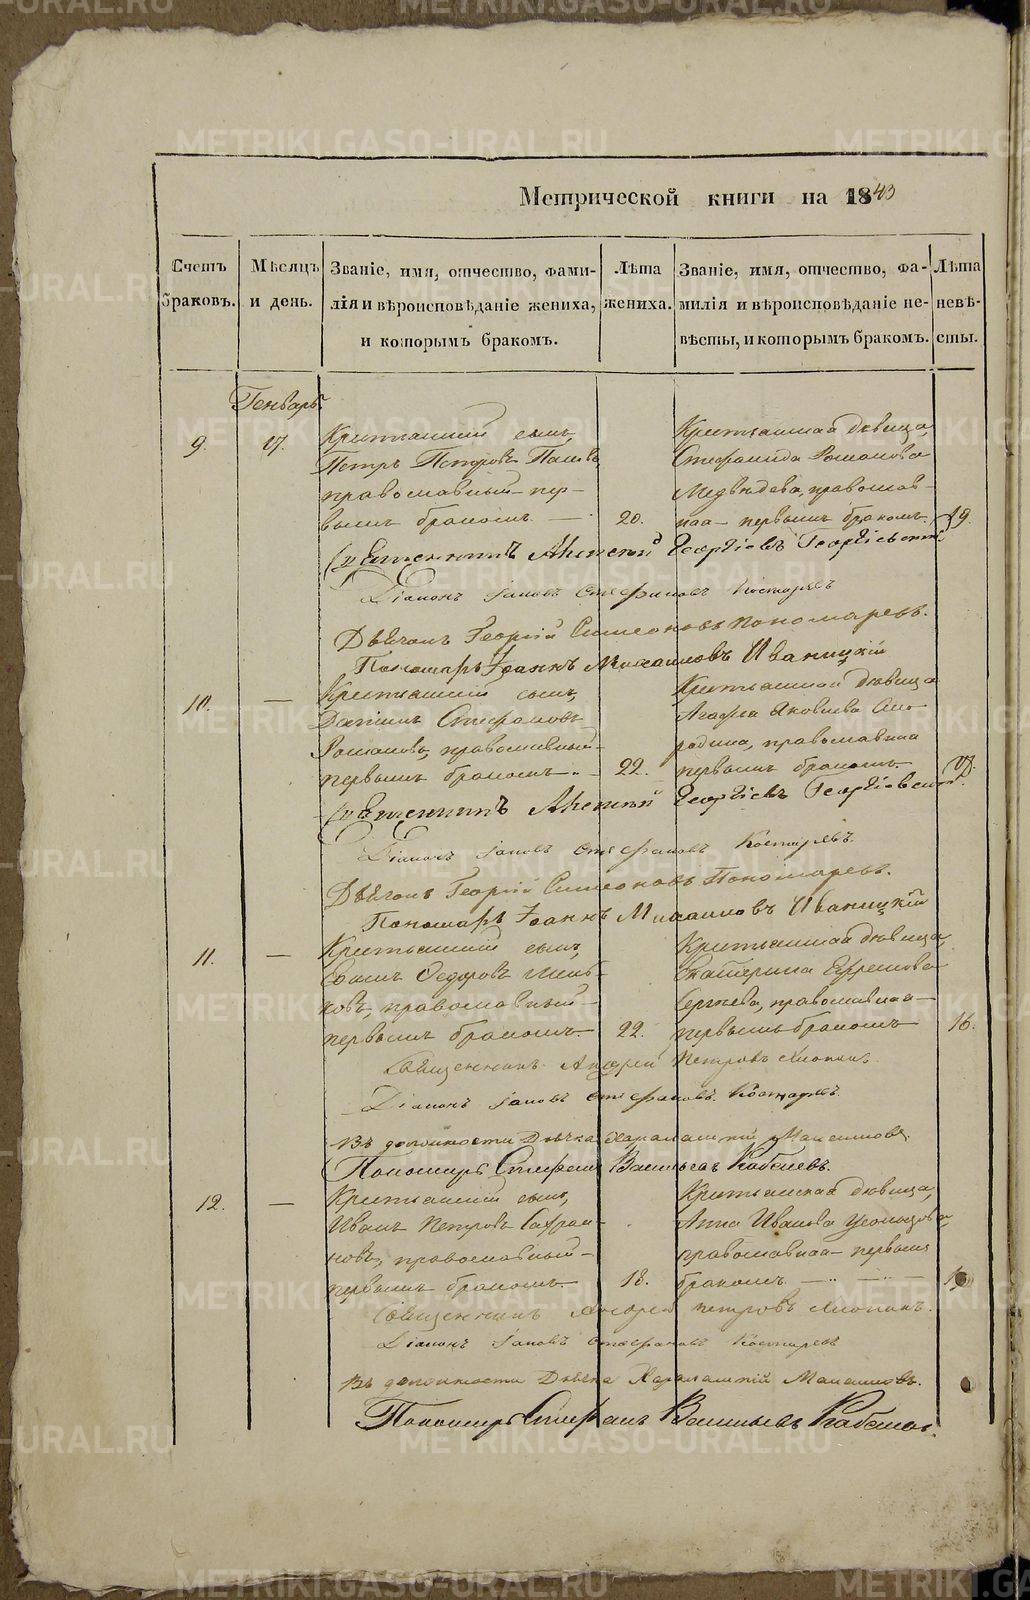 Метрической книги на 1843
Счетъ браковъ.
Мѣсяцъ и день.
Званіе, имя, отчество, фамилія и вѣроисповѣданіе жениха, и которымъ бракомъ.
Лѣта жениха.
Званіе, имя, отчество, фамилія и вѣроисповѣданіе невѣсты, и которымъ бракомъ.
Лѣта невѣсты.
Генварь
9.
17.
Крестьянскій сынъ,
Петръ Петровъ
православный пер-
вымъ бракомъ.
20.
Крестьянская дѣвица,
Стефанида Романова
Медвѣдева, православ-
ная первымъ бракомъ.
19.
Священникъ Алексѣй Георгіевъ Георгіевскій.
Діаконъ Іаковъ Стефановъ Костаревъ
Дьячокъ Георгій Симеоновъ Пономаревъ.
Пономарь Іоаннъ Михаиловъ Иваницкій
10.
—
Крестьянскій сынъ,
Даніилъ Стефановъ
Романовъ, православный
первымъ бракомъ.
22.
Крестьянская дѣвица
Агафья Яковлева Смо-
родина, православная
первымъ бракомъ.
17.
Священникъ Алексѣй Георгіевъ Георгіевскій.
Діаконъ Іаковъ Стефановъ Костаревъ.
Дьячокъ Георгій Симеоновъ Пономаревъ.
Пономарь Іоаннъ Михаиловъ Иваницкій
11.
—
Крестьянскій сынъ,
Ѳедоровъ
ковъ, православный
первымъ бракомъ.
22.
Крестьянская дѣвица,
Екатерина Ефремова
Сергѣева, православная
первымъ бракомъ
16.
Священникъ Андрей Петровъ Хлопинъ.
Діаконъ Іаковъ Стефановъ Костаревъ.
Въ должности Дьячка Харалампій Максимовъ.
Пономарь Стефанъ Васильевъ Кабаковъ.
12.
—
Крестьянскій сынъ,
Иванъ Петровъ Сафро-
новъ, православный
первымъ бракомъ.
18.
Крестьянская дѣвица,
Анна Иванова
православная первымъ
бракомъ.
Священникъ Андрей Петровъ Хлопинъ.
Діаконъ Іаковъ Стефановъ Костаревъ
Въ должности Дьячка Харалампій Максимовъ.
Пономарь Стефанъ Васильевъ Кабаковъ.
METRIKI.GASO-URAL.RU